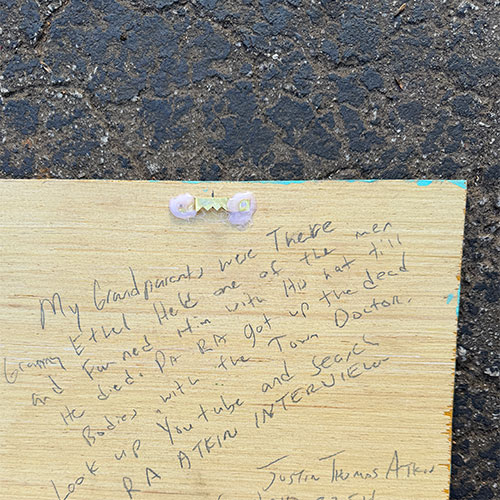 My Grandparents were There
Granny Ethel Held one of the men
and Fanned Him with His hat till
He died. PA RA Got up the dead
Bodies with the Town Doctor.
Look up Youtube and Search
RA ATKIN INTERVIEW
Justin Thomas Atkin